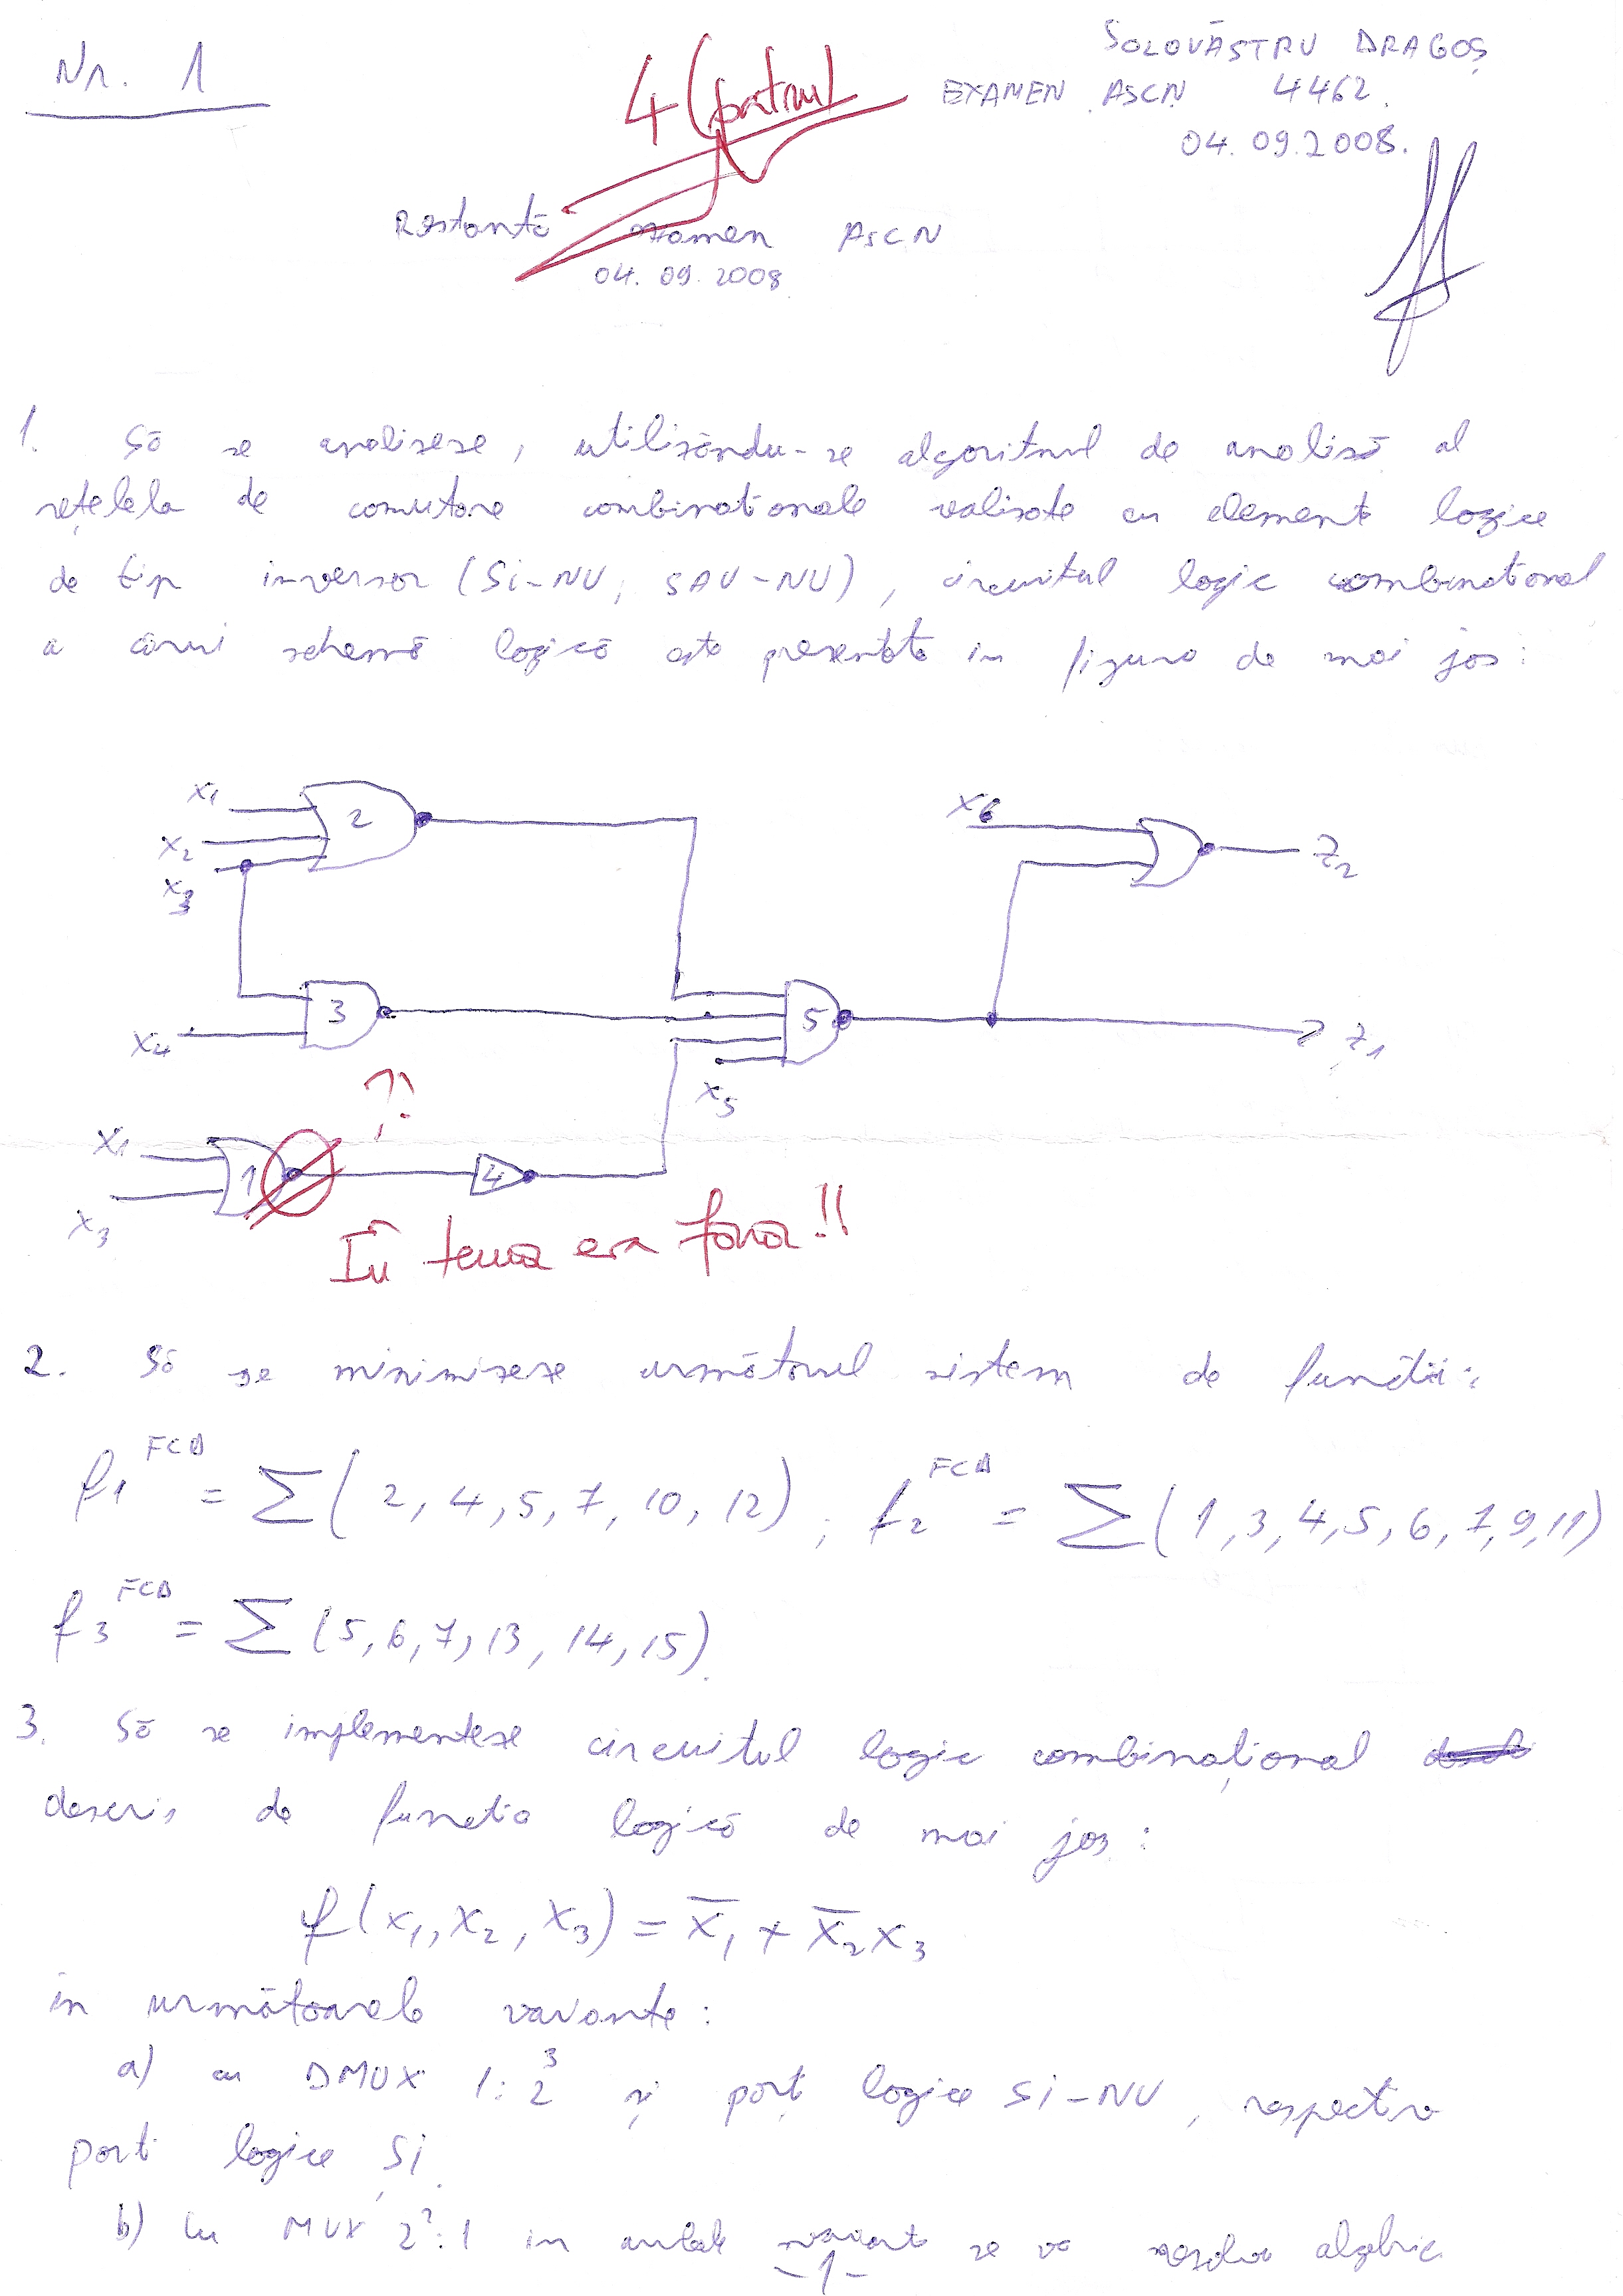 Nr. 1
4 (patru)
SOLOVĂSTRU DRAGOȘ
EXAMEN ASCN 4462
04.09.2008.
Restantă examen ASCN
04.09.2008
1. Să se analizeze, utilizându-se algoritmul de analiză al
rețelela de comutare combinationale realizate cu elemente logice
de tip inversor (Si-NU, SAU-NU), circuitul logic combinational
a cărui schemă logică este prezentata in figura de mai jos:
x1
x2
x3
2
x6
z2
x4
3
5
x5
z1
??
x1
x3
1
4
În tema era fără!!
2. Să se minimizeze următorul sistem de funcții:
f1 FCD = Σ( 2, 4, 5, 7, 10, 12) ; f2 FCD = Σ( 1, 3, 4, 5, 6, 7, 9, 11)
f3 FCD = Σ (5, 6, 7, 13, 14, 15).
3. Să se implementeze circuitul logic combinațional
descris de functia logică de mai jos:
f(x1, x2, x3) = x̄1 + x̄2 x3
in următoarele variante:
a) cu DMUX 1:2³ și porți logice Si-NU, respectiv
porti logice Si.
b) cu MUX 2²:1 in ambele variante se va rezolva algebric
-1-